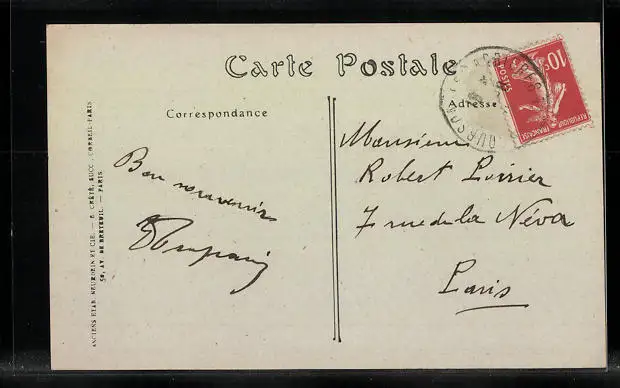 Carte Postale
Correspondance
Adresse
10c
POSTES
REPUBLIQUE FRANÇAISE
Bon souvenir
Monsieur
Robert Poirier
7 rue de la Néva
Paris
ANCIENS ETAB. NEURDEIN ET CIE. — E. CRÉTÉ, SUCC. CORBEIL-PARIS
50, AV. DE BRETEUIL. — PARIS.